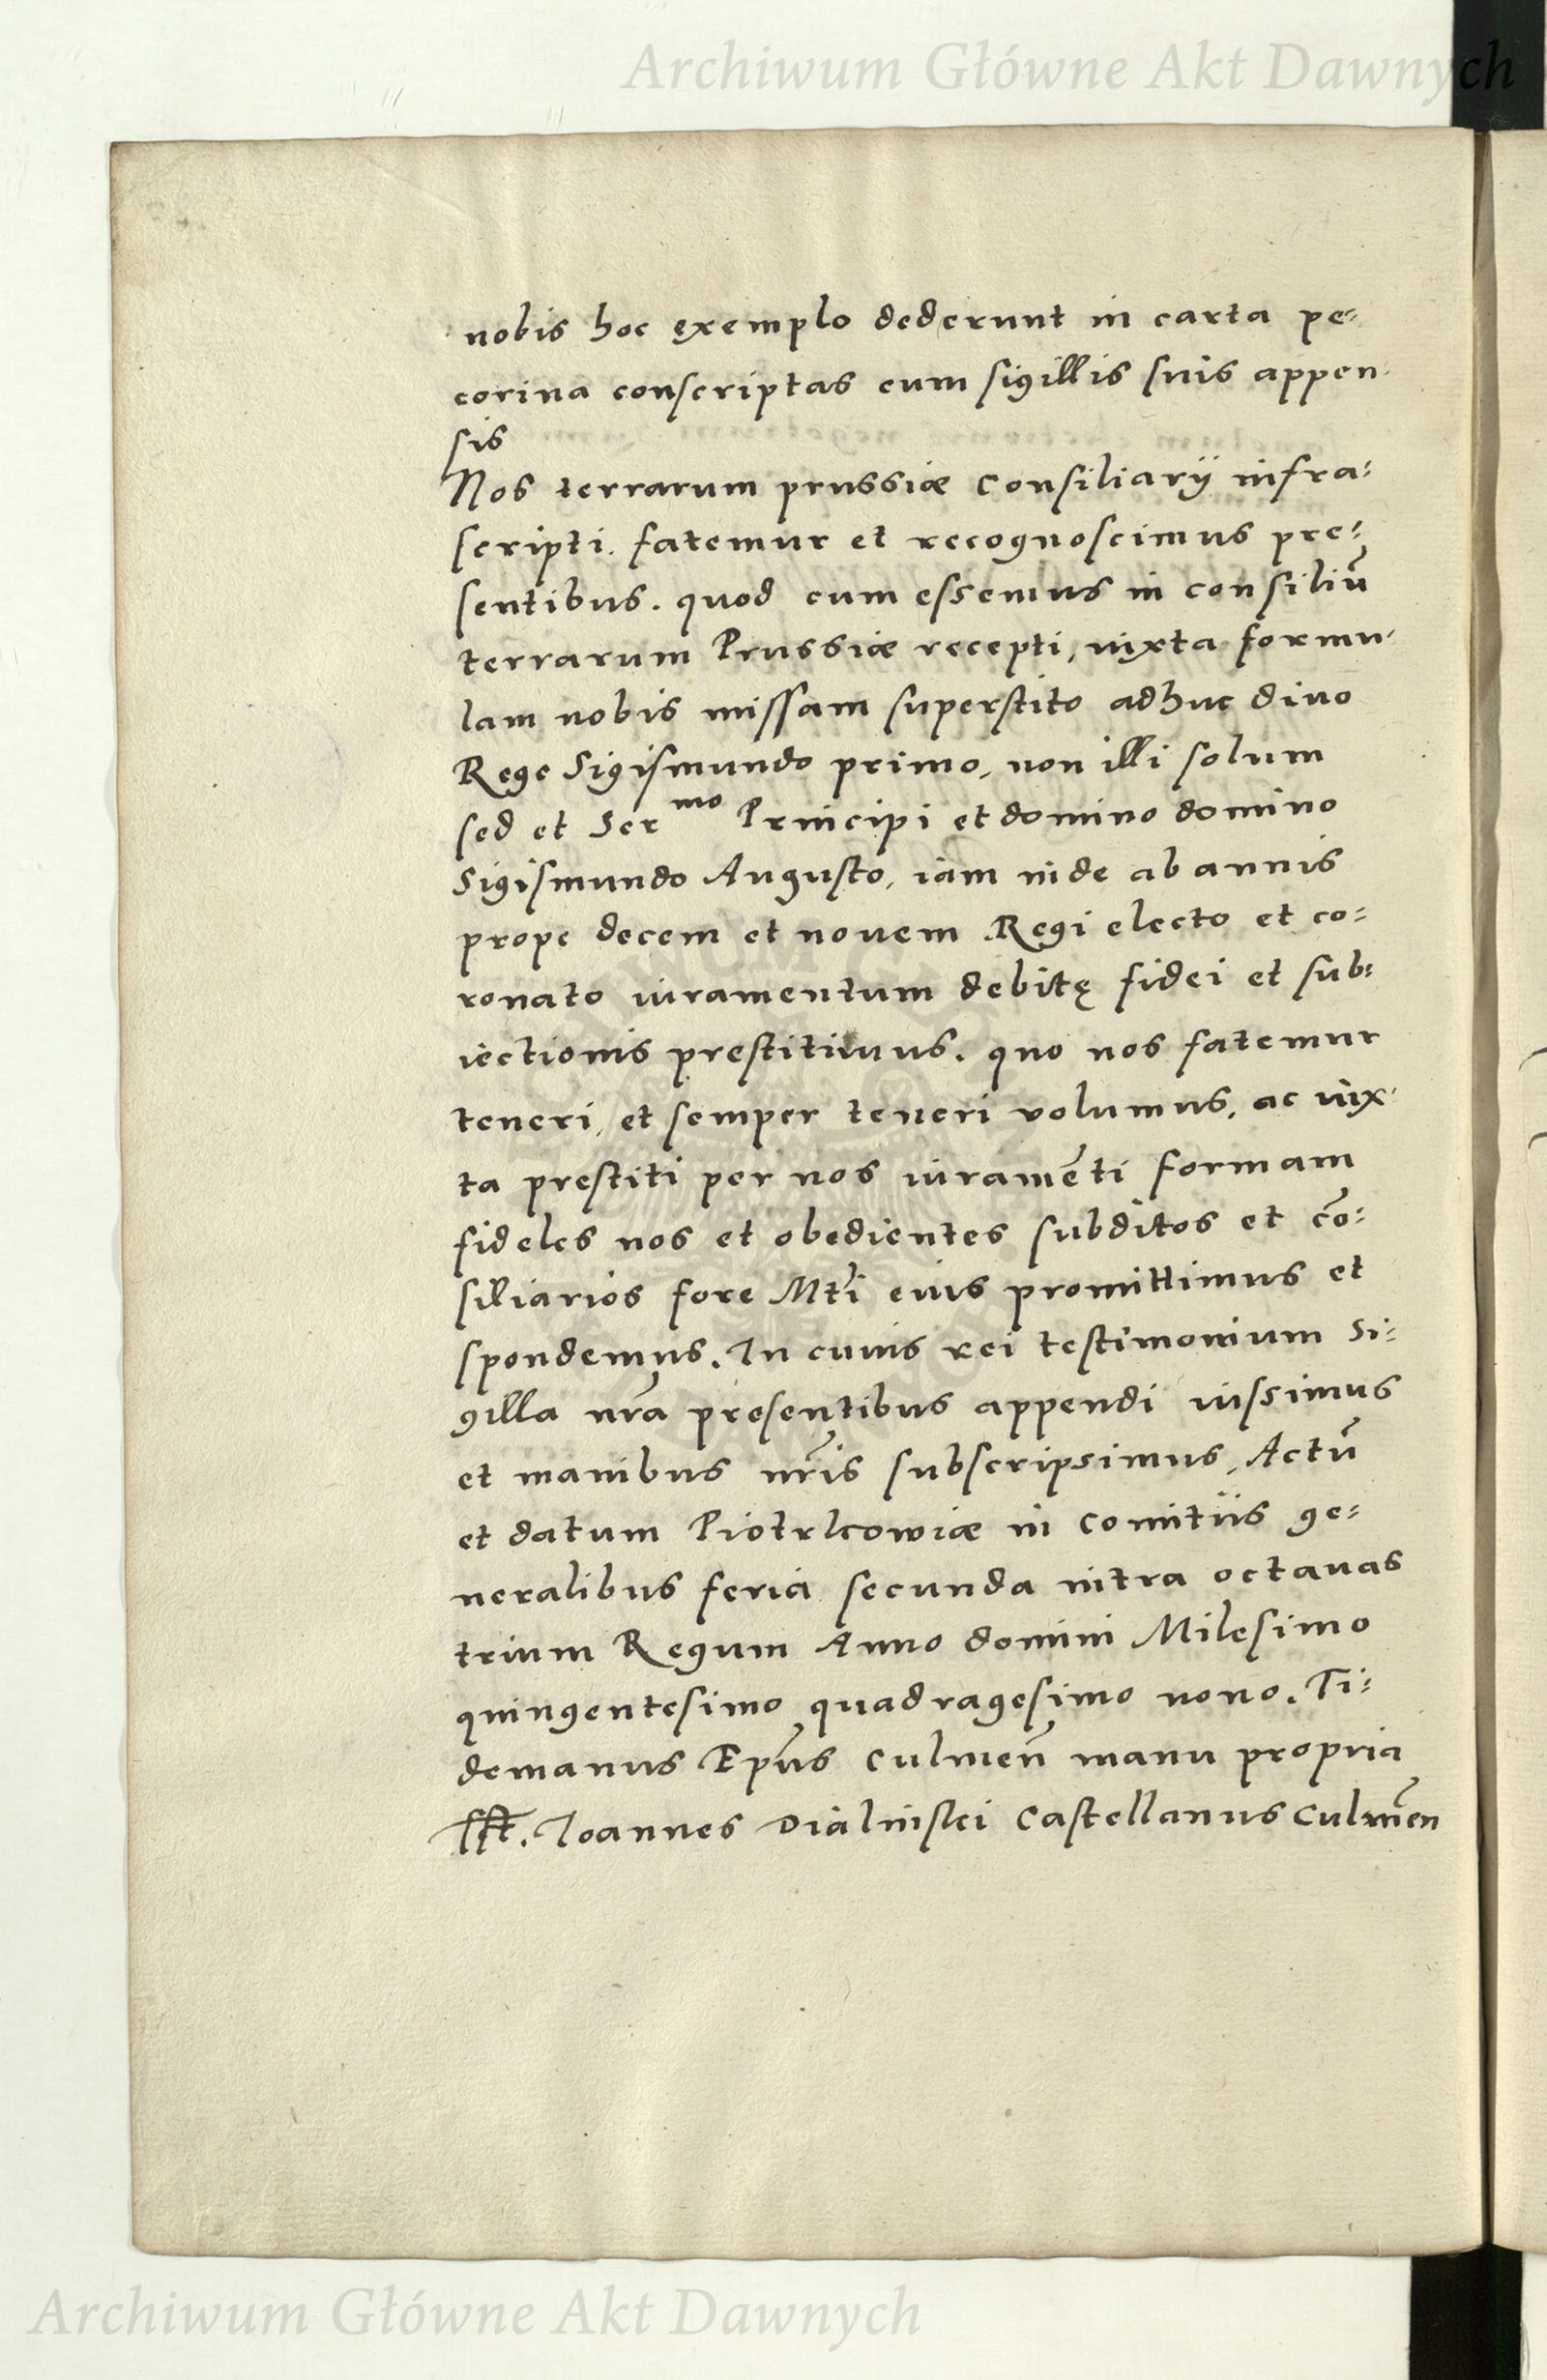 Archiwum Główne Akt Dawnych
nobis hoc exemplo dederunt in carta pe=
corina conscriptas cum sigillis suis appen-
sis
Nos terrarum prussiæ Consiliarij infra=
scripti. fatemur et recognoscimus pre=
sentibus. quod cum essemus in consiliū
terrarum Prussiæ recepti, iuxta formu-
lam nobis missam superstito adhuc diuo
Rege Sigismundo primo, non illi solum
sed et Ser mo Principi et domino domino
Sigismundo Augusto, iam inde ab annis
prope decem et nouem Regi electo et co=
ronato iuramentum debitę fidei et sub=
iectionis prestitimus. quo nos fatemur
teneri, et semper teneri volumus, ac iux-
ta prestiti per nos iuramēti formam
fideles nos et obedientes subditos et cō=
siliarios fore Mti eius promittimus et
spondemus. In cuius rei testimonium si=
gilla nrā presentibus appendi iussimus
et manibus nrīs subscripsimus, Actū
et datum Piotrkowiæ in comitiis ge=
neralibus feria secunda intra octauas
trium Regum Anno domini Milesimo
quingentesimo quadragesimo nono. Ti=
demanus Epūs Culmeñ manu propria
sst. Joannes Dialinski Castellanus Culmēn
Archiwum Główne Akt Dawnych